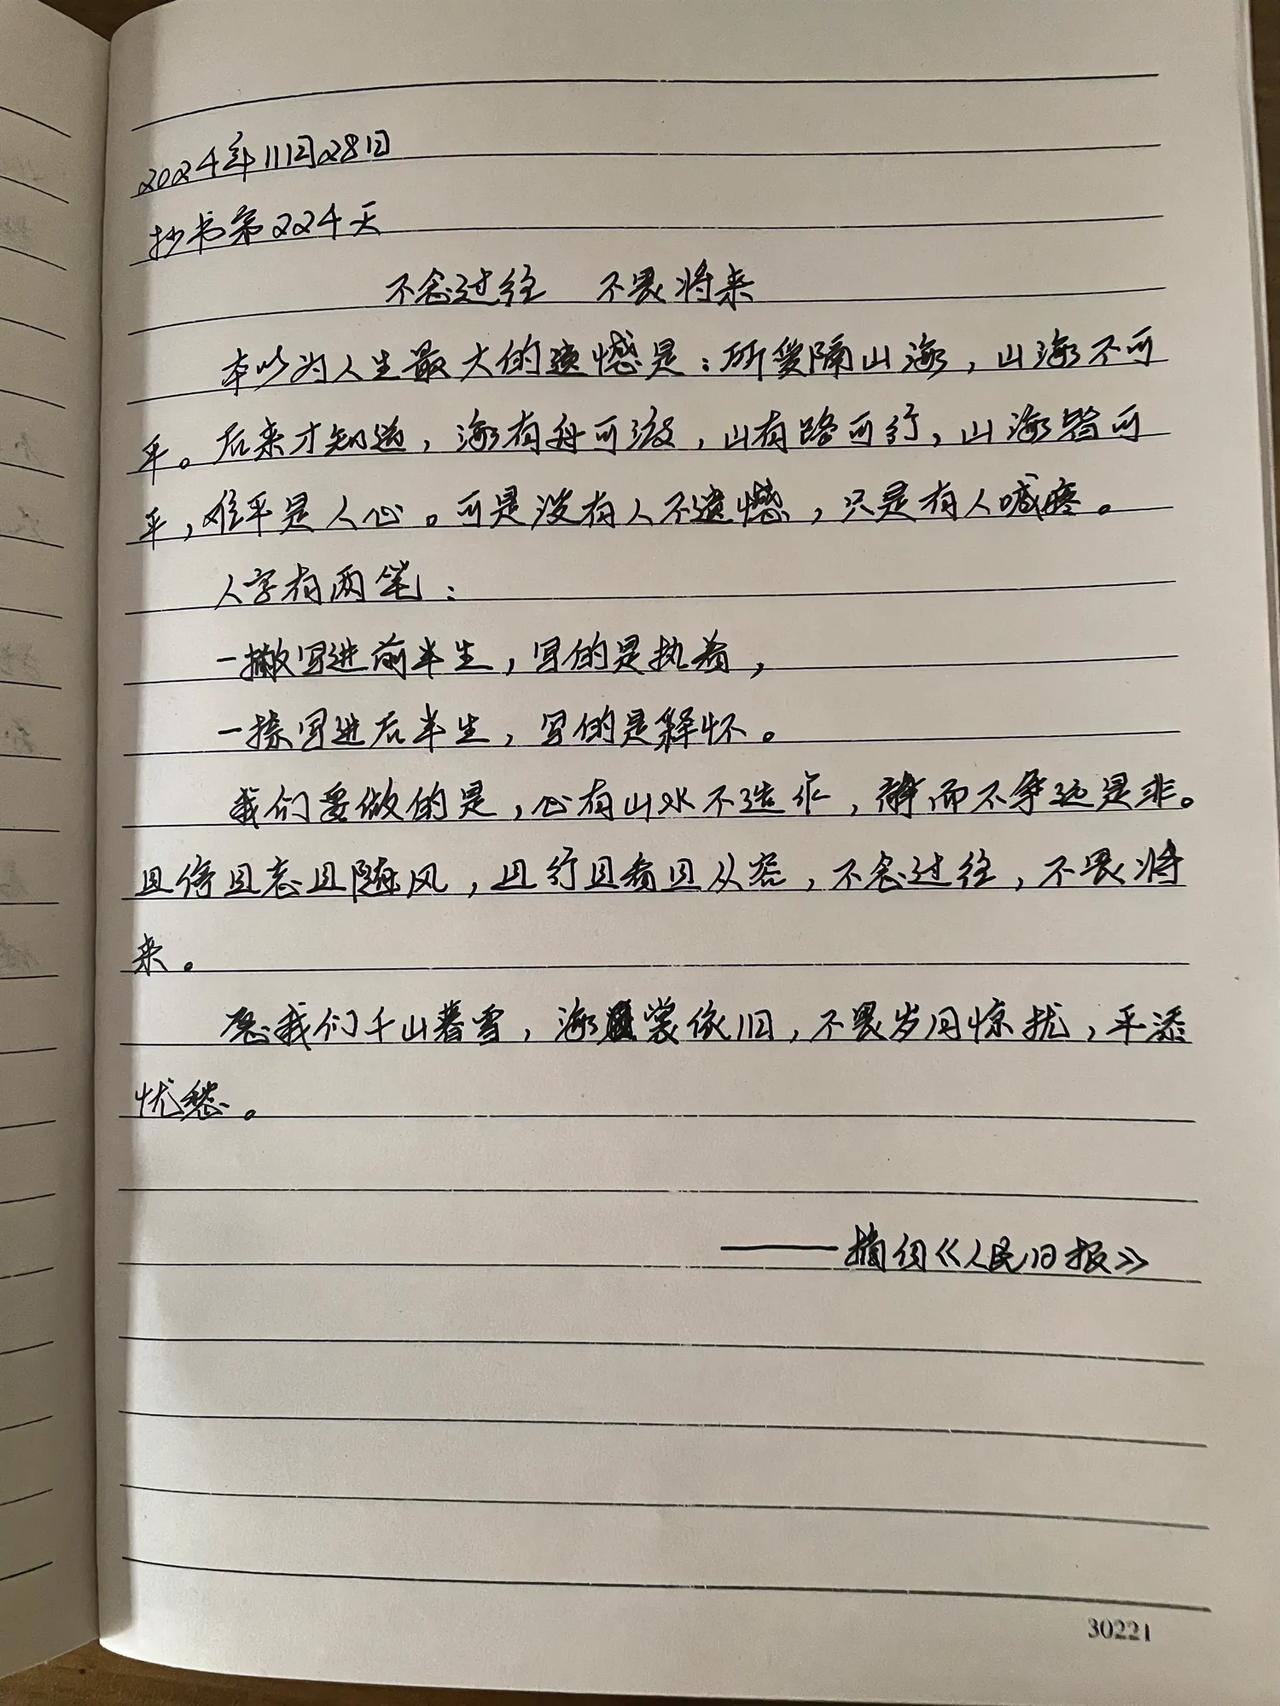 2024年11月28日
抄书第224天
不念过往 不畏将来
本以为人生最大的遗憾是：所爱隔山海，山海不可
平。后来才知道，海有舟可渡，山有路可行，山海皆可
平，难平是人心。可是没有人不遗憾，只是有人喊疼。
人字有两笔：
一撇写进前半生，写的是执着，
一捺写进后半生，写的是释怀。
我们要做的是，心有山水不造作，静而不争远是非。
且停且忘且随风，且行且看且从容，不念过往，不畏将
来。
愿我们千山暮雪，海棠依旧，不畏岁月惊扰，平添
忧愁。
——摘自《人民日报》
30221